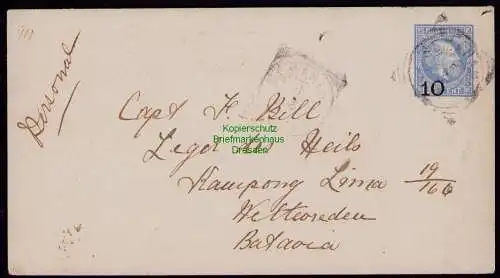 Personal
10
Capt F. Bill
Kopierschutz
Briefmarkenhaus
Dresden
Leger des Heils
Kampong Lima 19/166
Weltevreden
Batavia